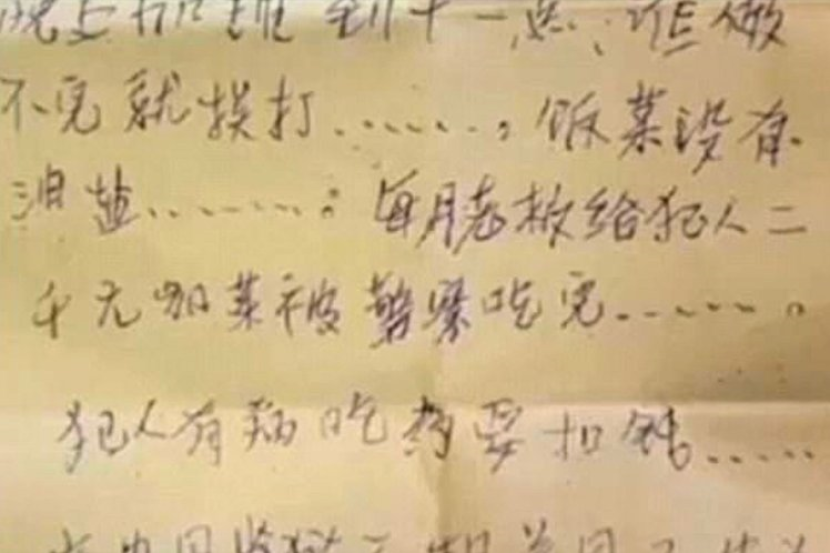 晚上加班到十一点，谁做
不完就挨打……。饭菜没有
油盐……。每月老板给犯人二
千元加菜被警察吃完……。
犯人有病吃药要扣钱……
在中国监狱